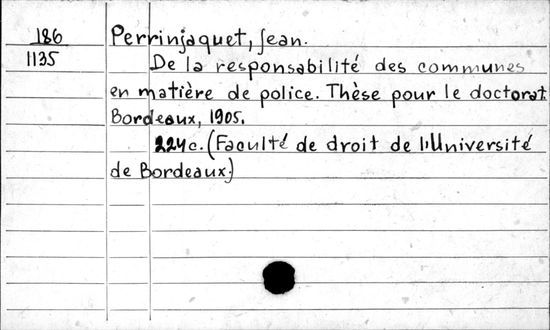 186
1135
Perrinjaquet, Jean.
De la responsabilité des communes
en matière de police. Thèse pour le doctorat.
Bordeaux, 1905.
224c. (Faculté de droit de l'Université
de Bordeaux.)